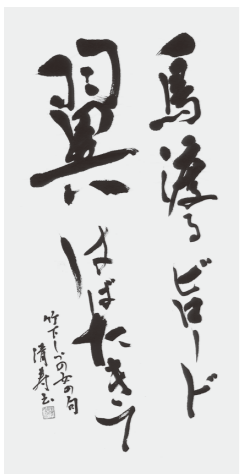 鳥渡るビロード
翼はばたきて
竹下しづの女の句
清寿